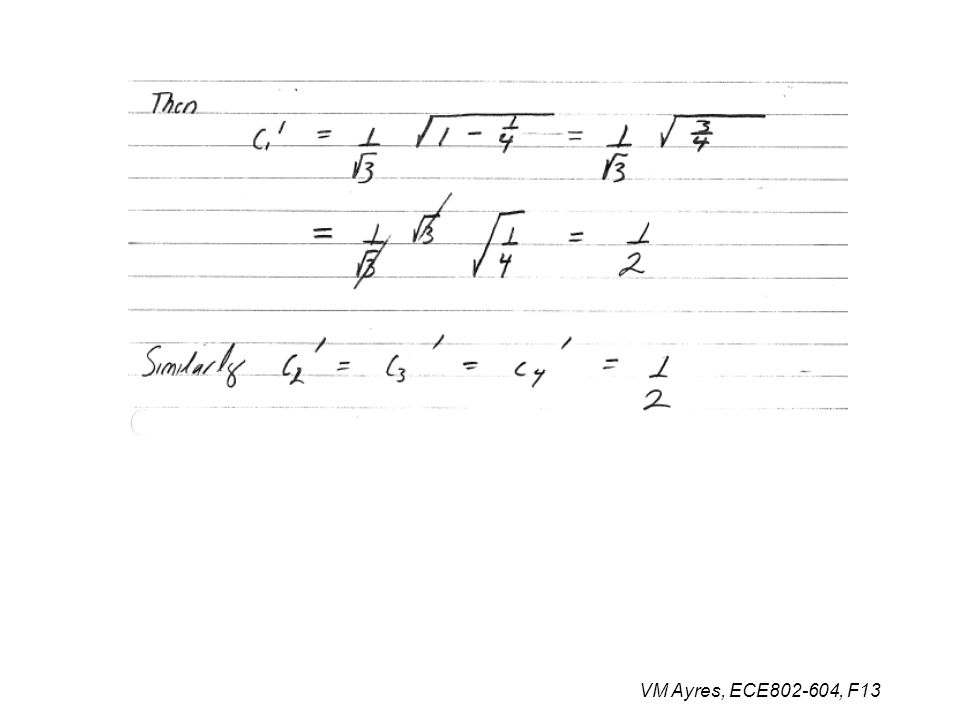 Then
C₁' = 1/√3 √(1 - 1/4) = 1/√3 √(3/4)
= 1/√3 √3 √(1/4) = 1/2
Similarly C₂' = C₃' = C₄' = 1/2
VM Ayres, ECE802-604, F13